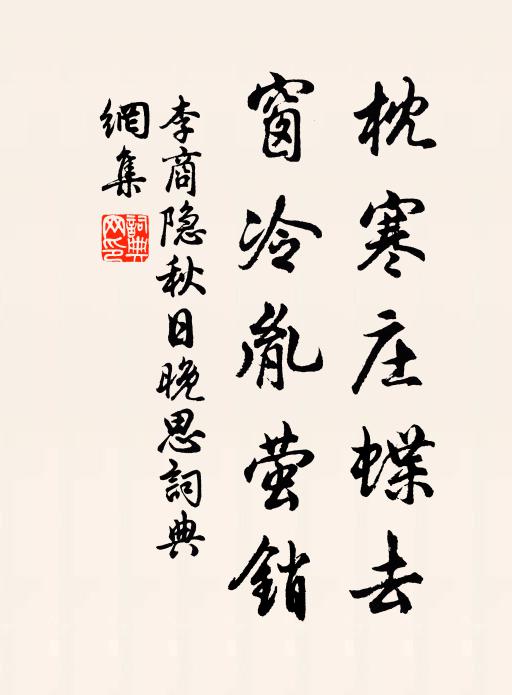 枕寒庄蝶去
窗冷胤萤銷
李商隐秋日晚思詞典
網集
詞典
网印